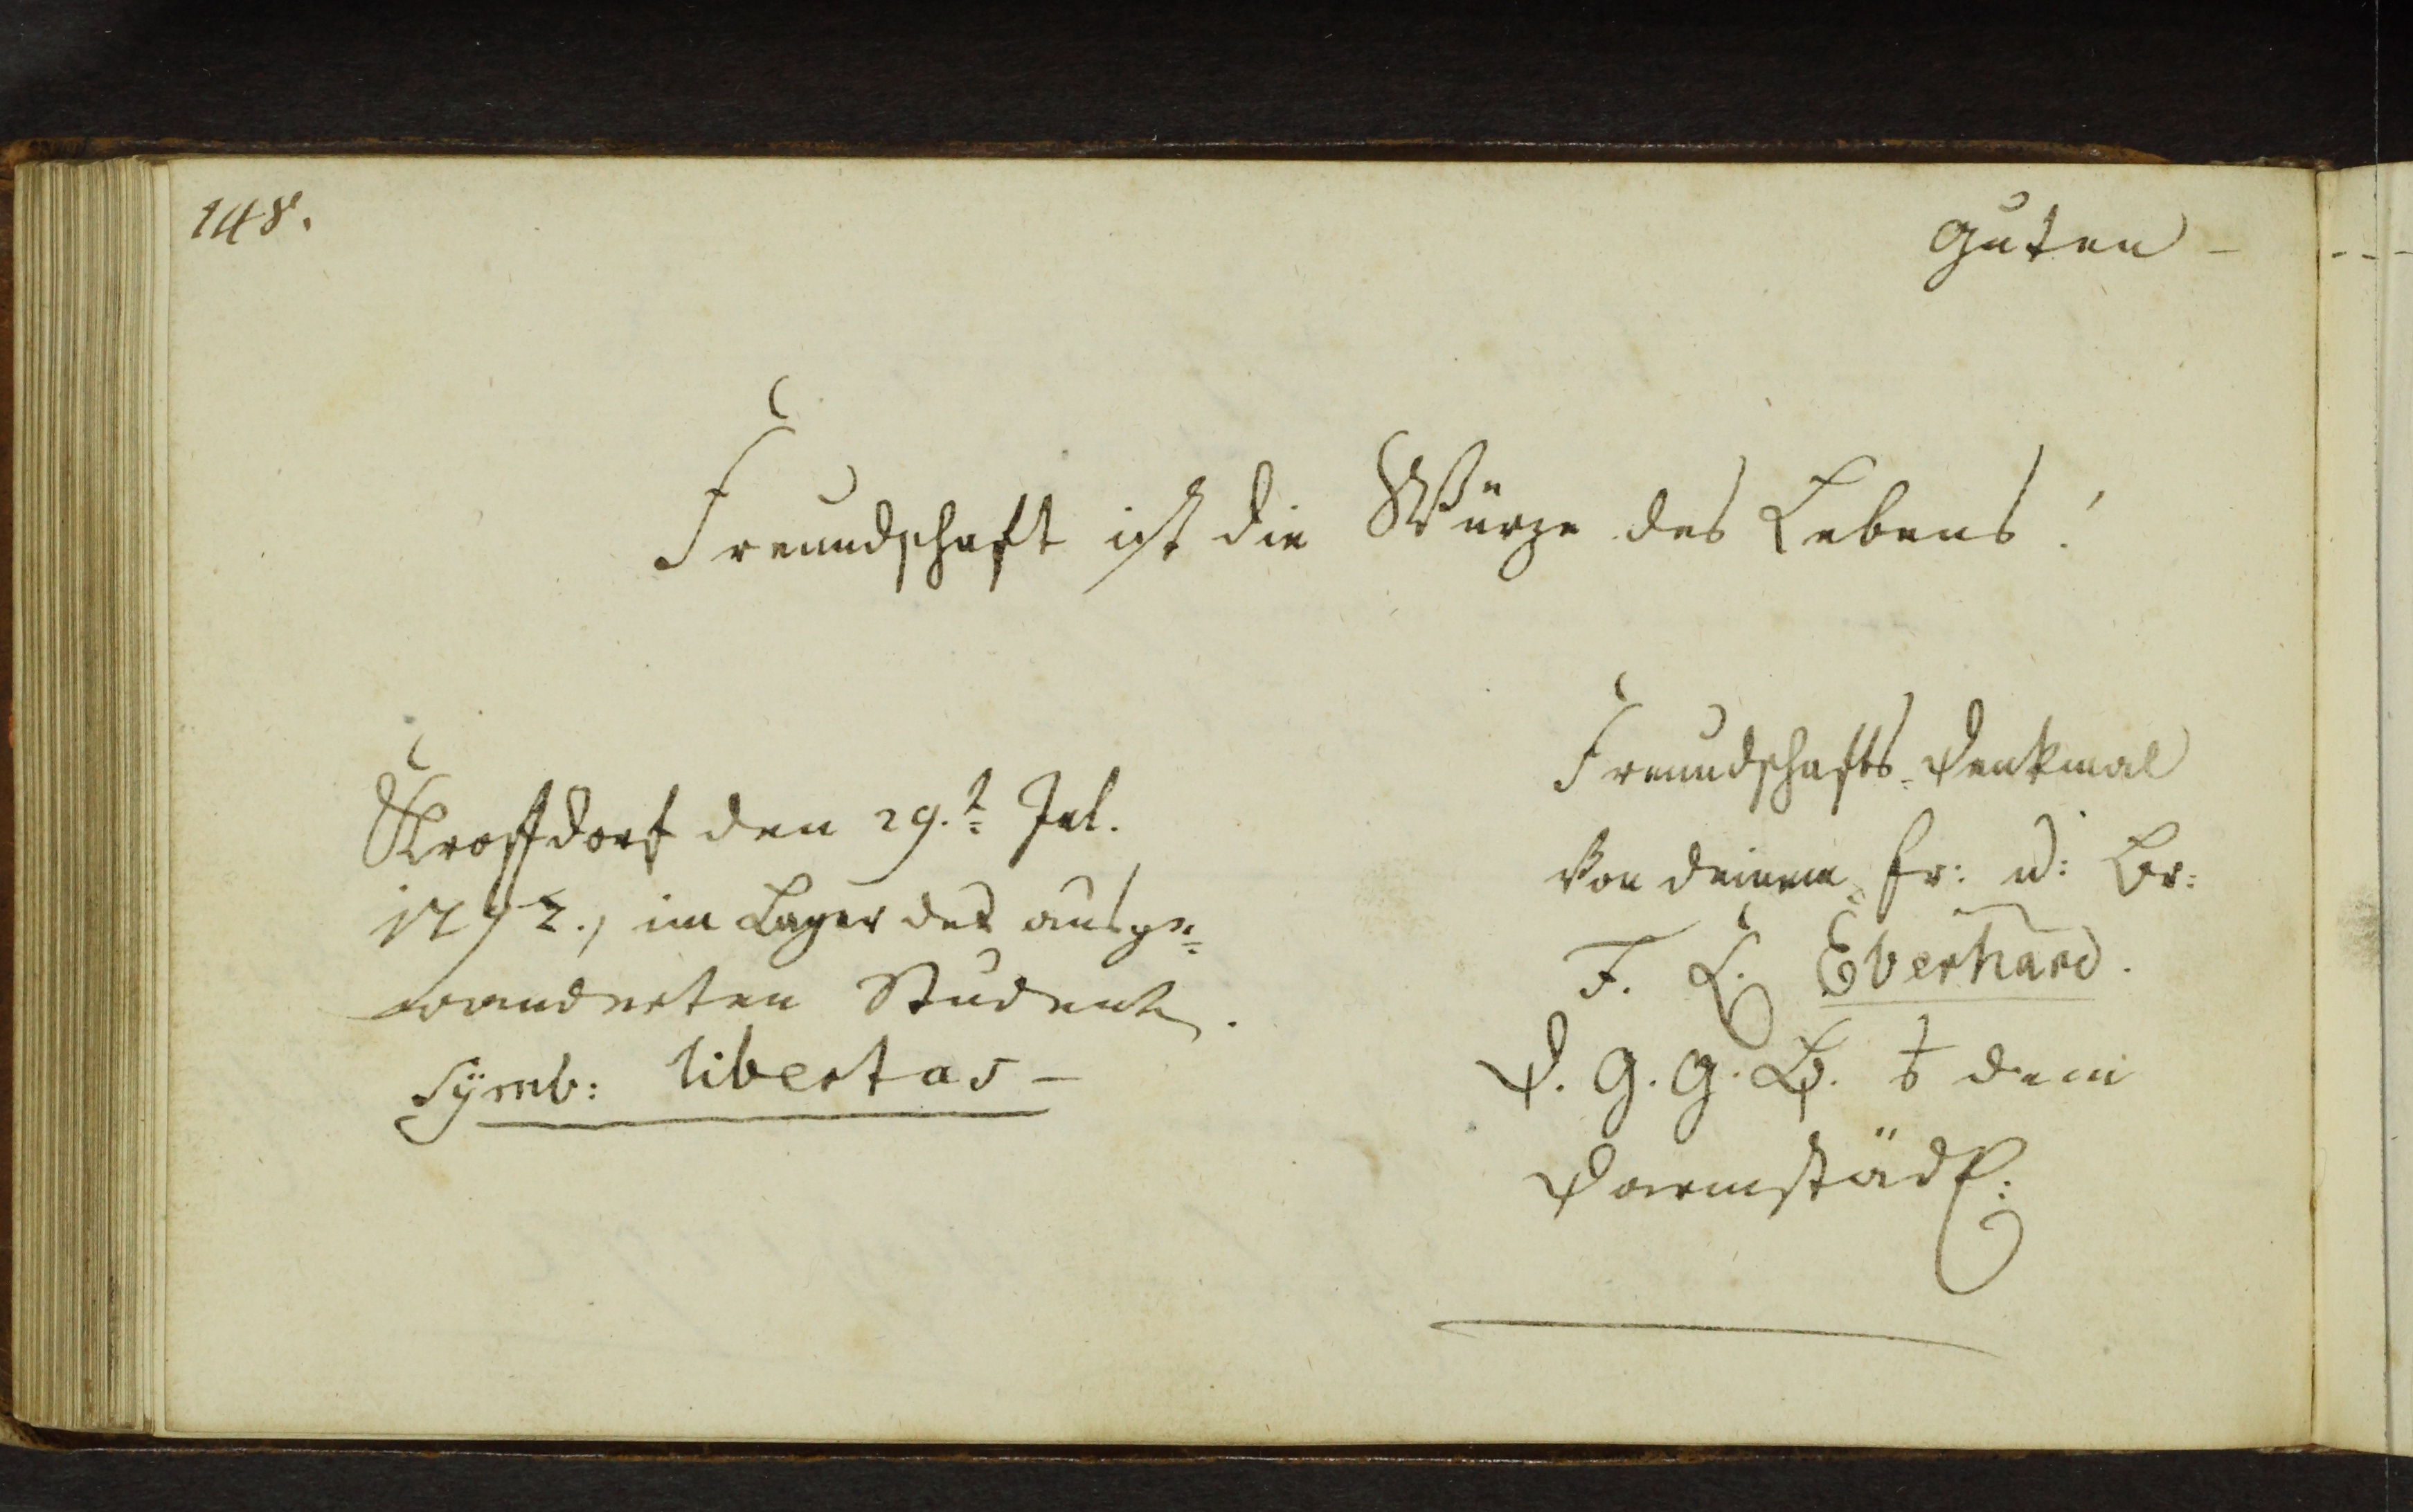 148.
guten -
Freundschaft ist die Würze des Lebens!
Kroffdorf den 29.t Jul.
1792., im Lager der ausge=
wanderten Student.
Symb: libertas -
Freundschafts-Denkmal
von deinem Fr: u: Br:
F. L. Eberhard.
D. G. G. B. a dem
Darmstädt: